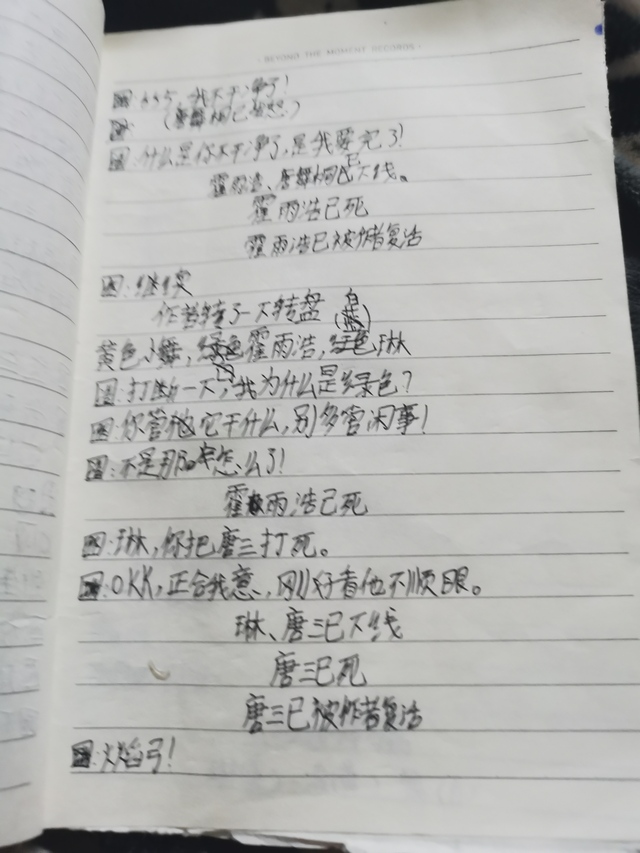 BEYOND THE MOMENT RECORDS
：555，我不干净了！
：（唐舞桐已
：什么是你不干净了，是我要完了！
霍雨浩、唐舞桐已下线。
霍雨浩已死
霍雨浩已被作者复活
：继续
作者转了一下转盘
黄色小舞，绿色霍雨浩，白色琳
：打断一下，我为什么是绿色？
：你管他它干什么，别多管闲事！
：不是那咋怎么了！
霍雨浩已死
：琳，你把唐三打死。
：OKK，正合我意，刚好看他不顺眼。
琳、唐三已下线
唐三已死
唐三已被作者复活
：火焰弓！